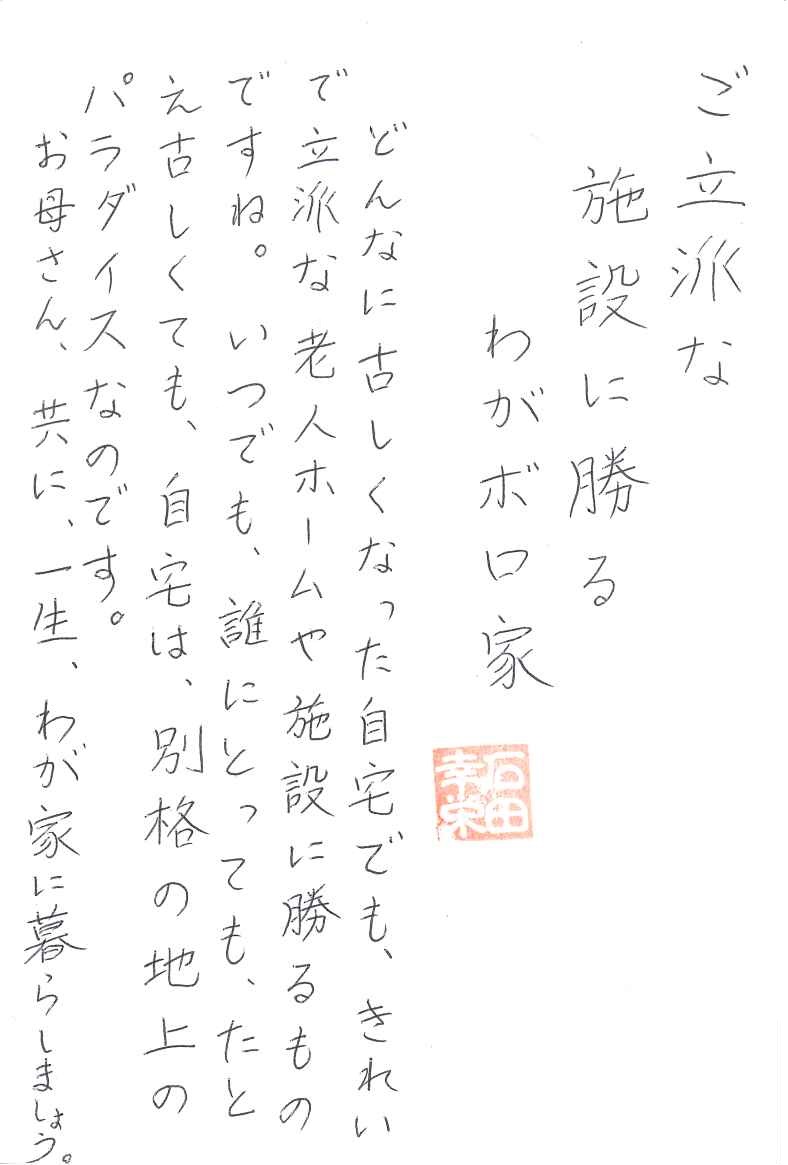 ご立派な
施設に勝る
わがボロ家
石田
幸栄
どんなに古しくなった自宅でも、きれい
で立派な老人ホームや施設に勝るもの
ですね。いつでも、誰にとっても、たと
え古しくても、自宅は、別格の地上の
パラダイスなのです。
お母さん、共に、一生、わが家に暮らしましょう。